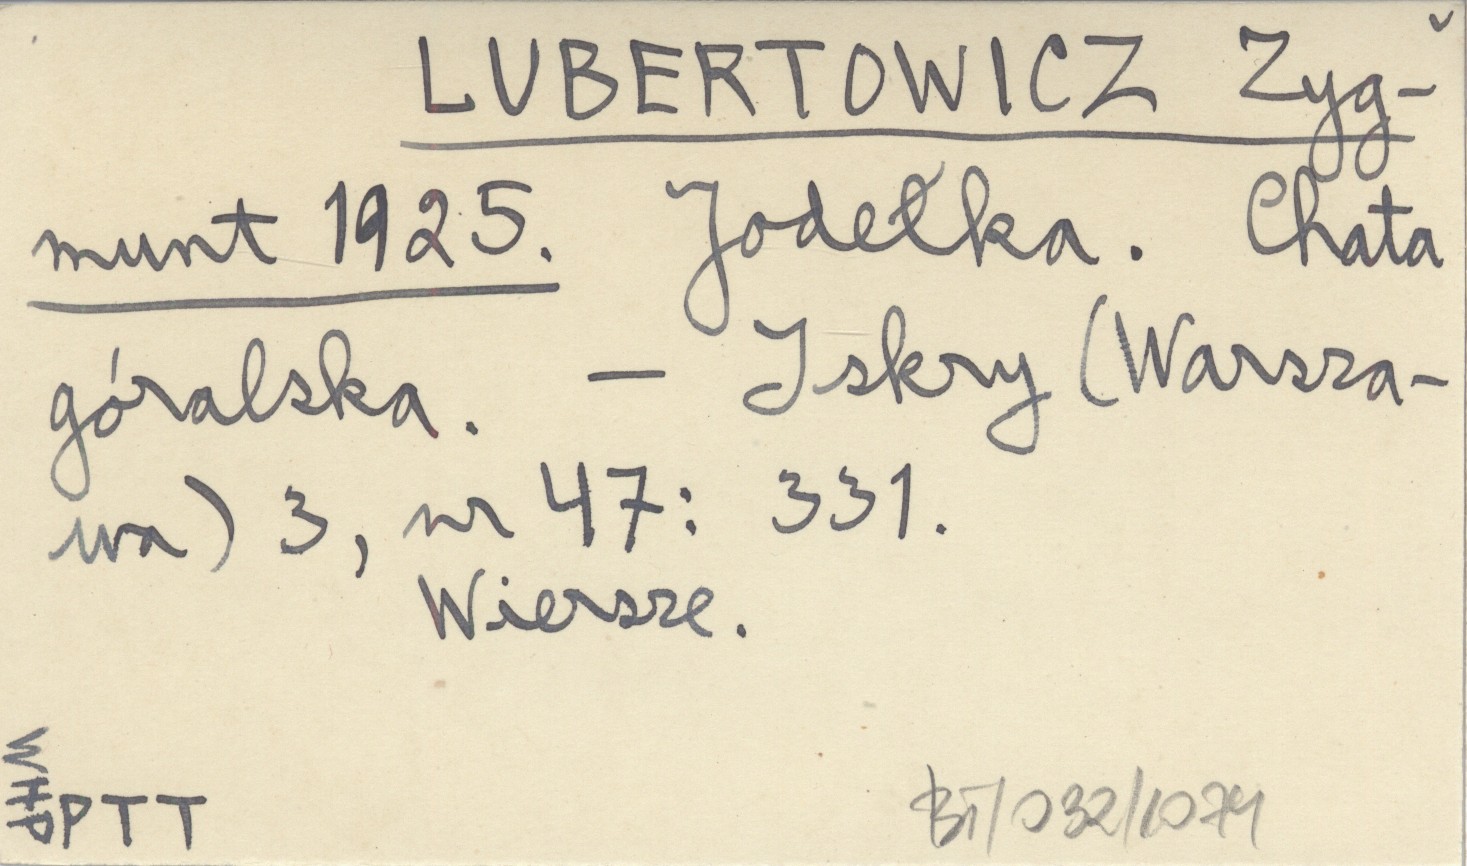 LUBERTOWICZ Zyg-
munt 1925. Jodełka. Chata
góralska. — Iskry (Warsza-
wa) 3, nr 47: 331.
Wiersze.
PTT
BT/032/1074